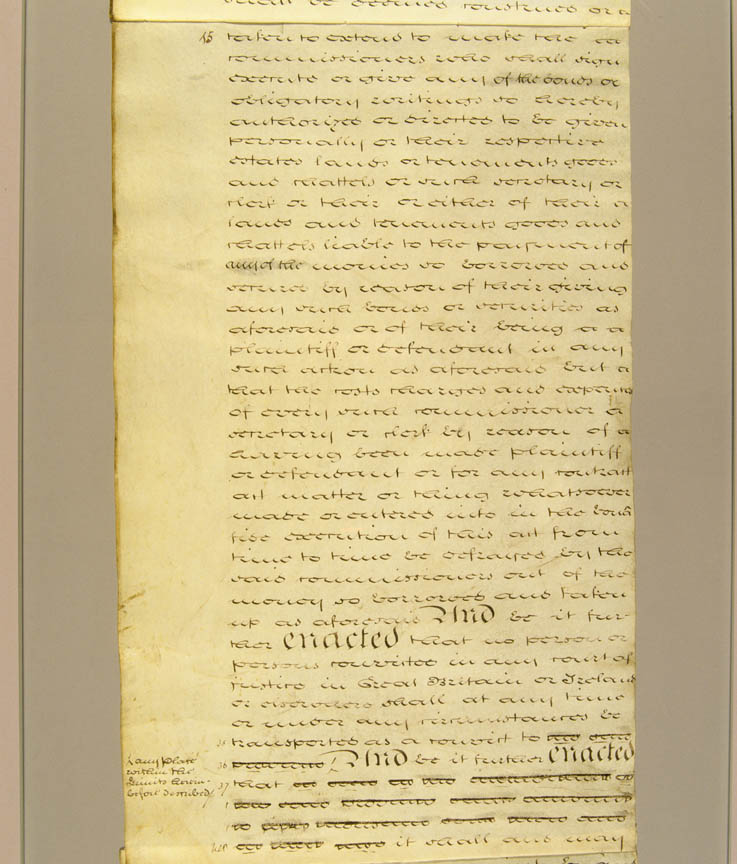 shall be deemed construed or a
15 taken to extend to make the a
commissioners who shall sign
execute or give any of the bonds or
obligatory writings so hereby
authorized or directed to be given
personally or their respective
estates lands or tenements goods
and chattels or such secretary or
clerk or their or either of their a
lands and tenements goods and
chattels liable to the payment of
any of the monies so borrowed and
secured by reason of their giving
any such bonds or securities as
aforesaid or of their being a a
plaintiff or defendant in any
such action as aforesaid but a
that the costs charges and expences
of every such commissioner a
secretary or clerk by reason of a
having been made plaintiff
or defendant or for any contract
act matter or thing whatsoever
made or entered into in the bona
fide execution of this act from
time to time be defrayed by the
said commissioners out of the
money so borrowed and taken
up as aforesaid And be it fur
ther enacted that no person or
persons convicted in any court of
justice in Great Britain or Ireland
or elsewhere shall at any time
or under any circumstances be
35 transported as a convict to
any place
within the
limits herein
before described
36 And be it further enacted
37 that
it shall and may